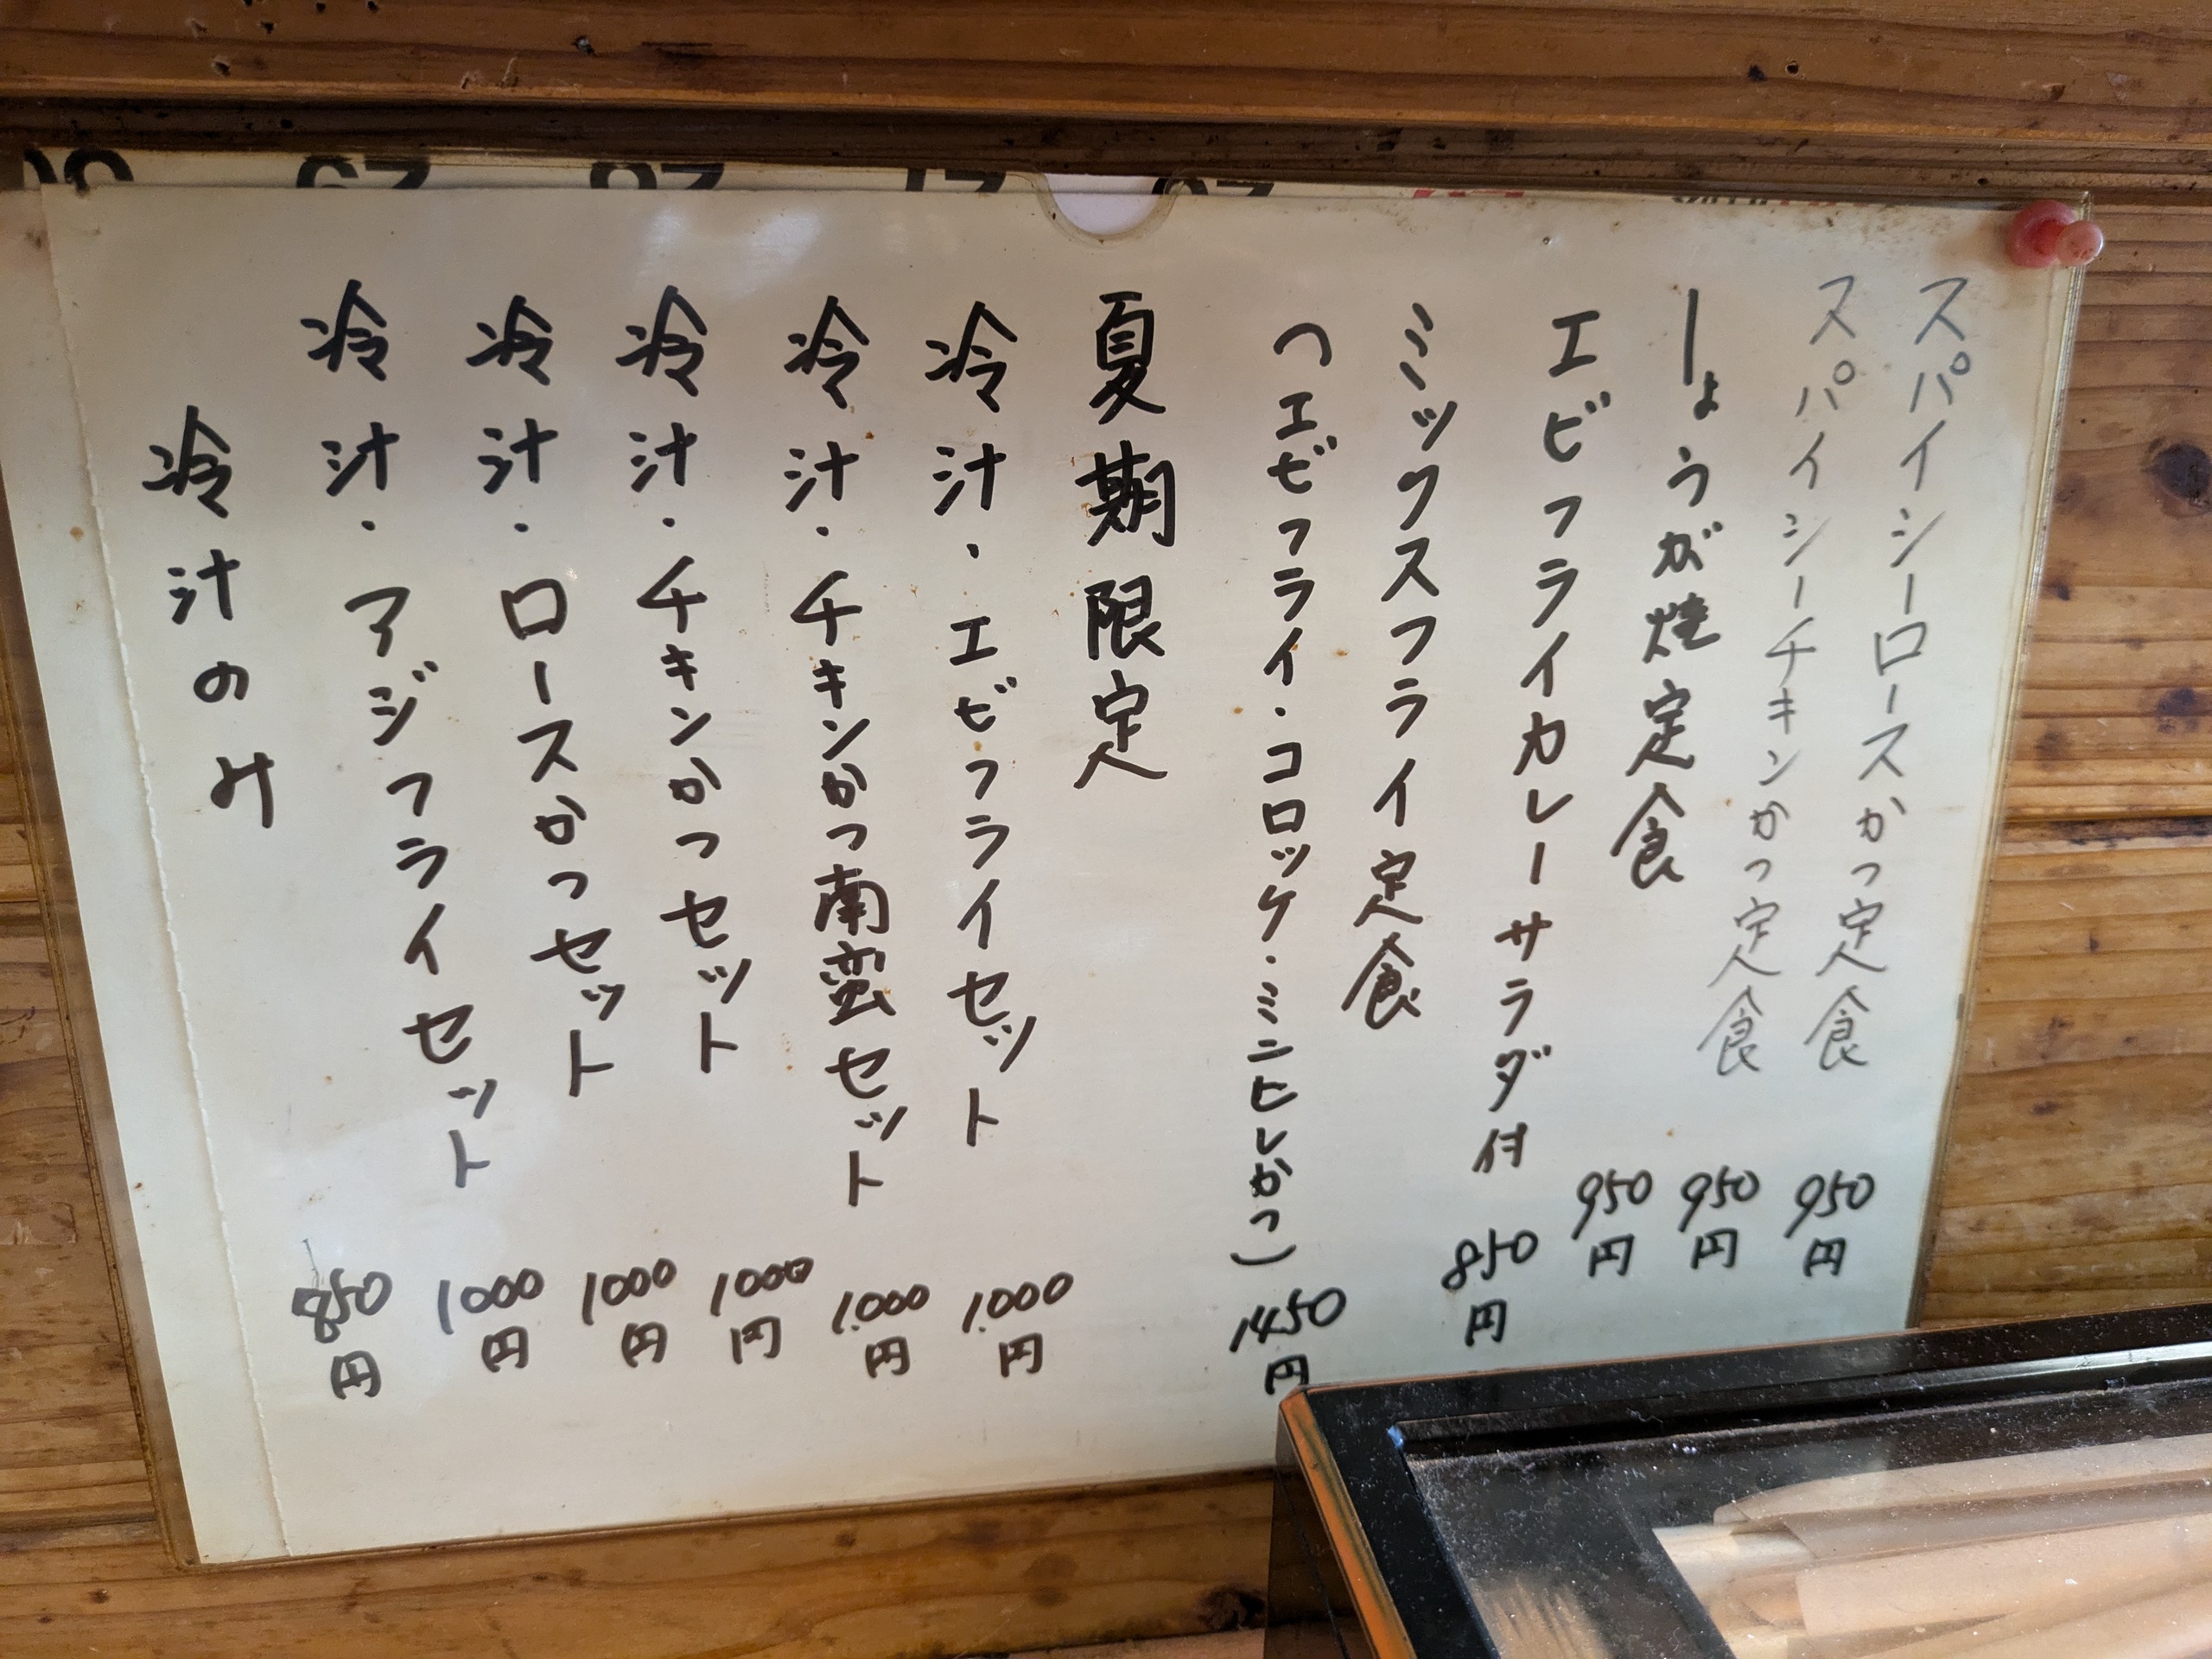 スパイシーロースかつ定食 950円
スパイシーチキンかつ定食 950円
しょうが焼定食 950円
エビフライカレーサラダ付 850円
ミックスフライ定食
(エビフライ・コロッケ・ミニヒレかつ) 1450円
夏期限定
冷汁・エビフライセット 1.000円
冷汁・チキンかつ南蛮セット 1.000円
冷汁・チキンかつセット 1000円
冷汁・ロースかつセット 1000円
冷汁・アジフライセット 1000円
冷汁のみ 850円